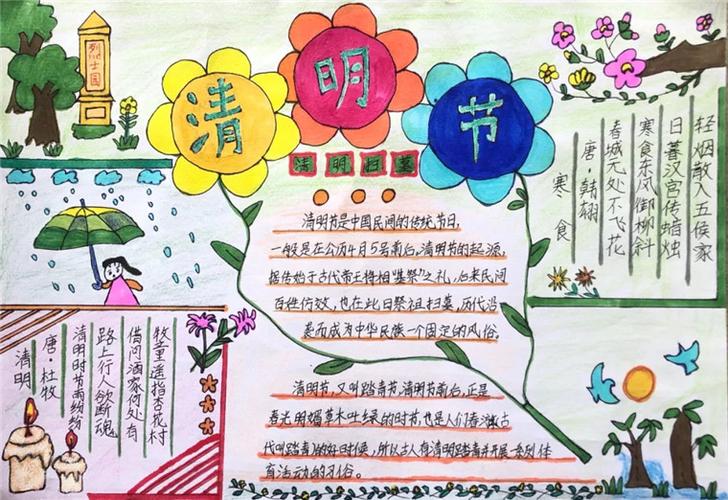 烈士园
清明节
清明扫墓
清明节是中国民间的传统节日,
一般是在公历4月5号前后。清明节的起源,
据传始于古代帝王将相“墓祭”之礼,后来民间
百姓仿效,也在此日祭祖扫墓,历代沿
袭而成为中华民族一个固定的风俗。
清明节,又叫踏青节,清明节前后,正是
春光明媚草木吐绿的时节,也是人们春游(古
代叫踏青)的好时候,所以古人有清明踏青并开展一系列体
育活动的习俗。
寒食
唐·韩翃
春城无处不飞花
寒食东风御柳斜
日暮汉宫传蜡烛
轻烟散入五侯家
清明
唐·杜牧
清明时节雨纷纷
路上行人欲断魂
借问酒家何处有
牧童遥指杏花村